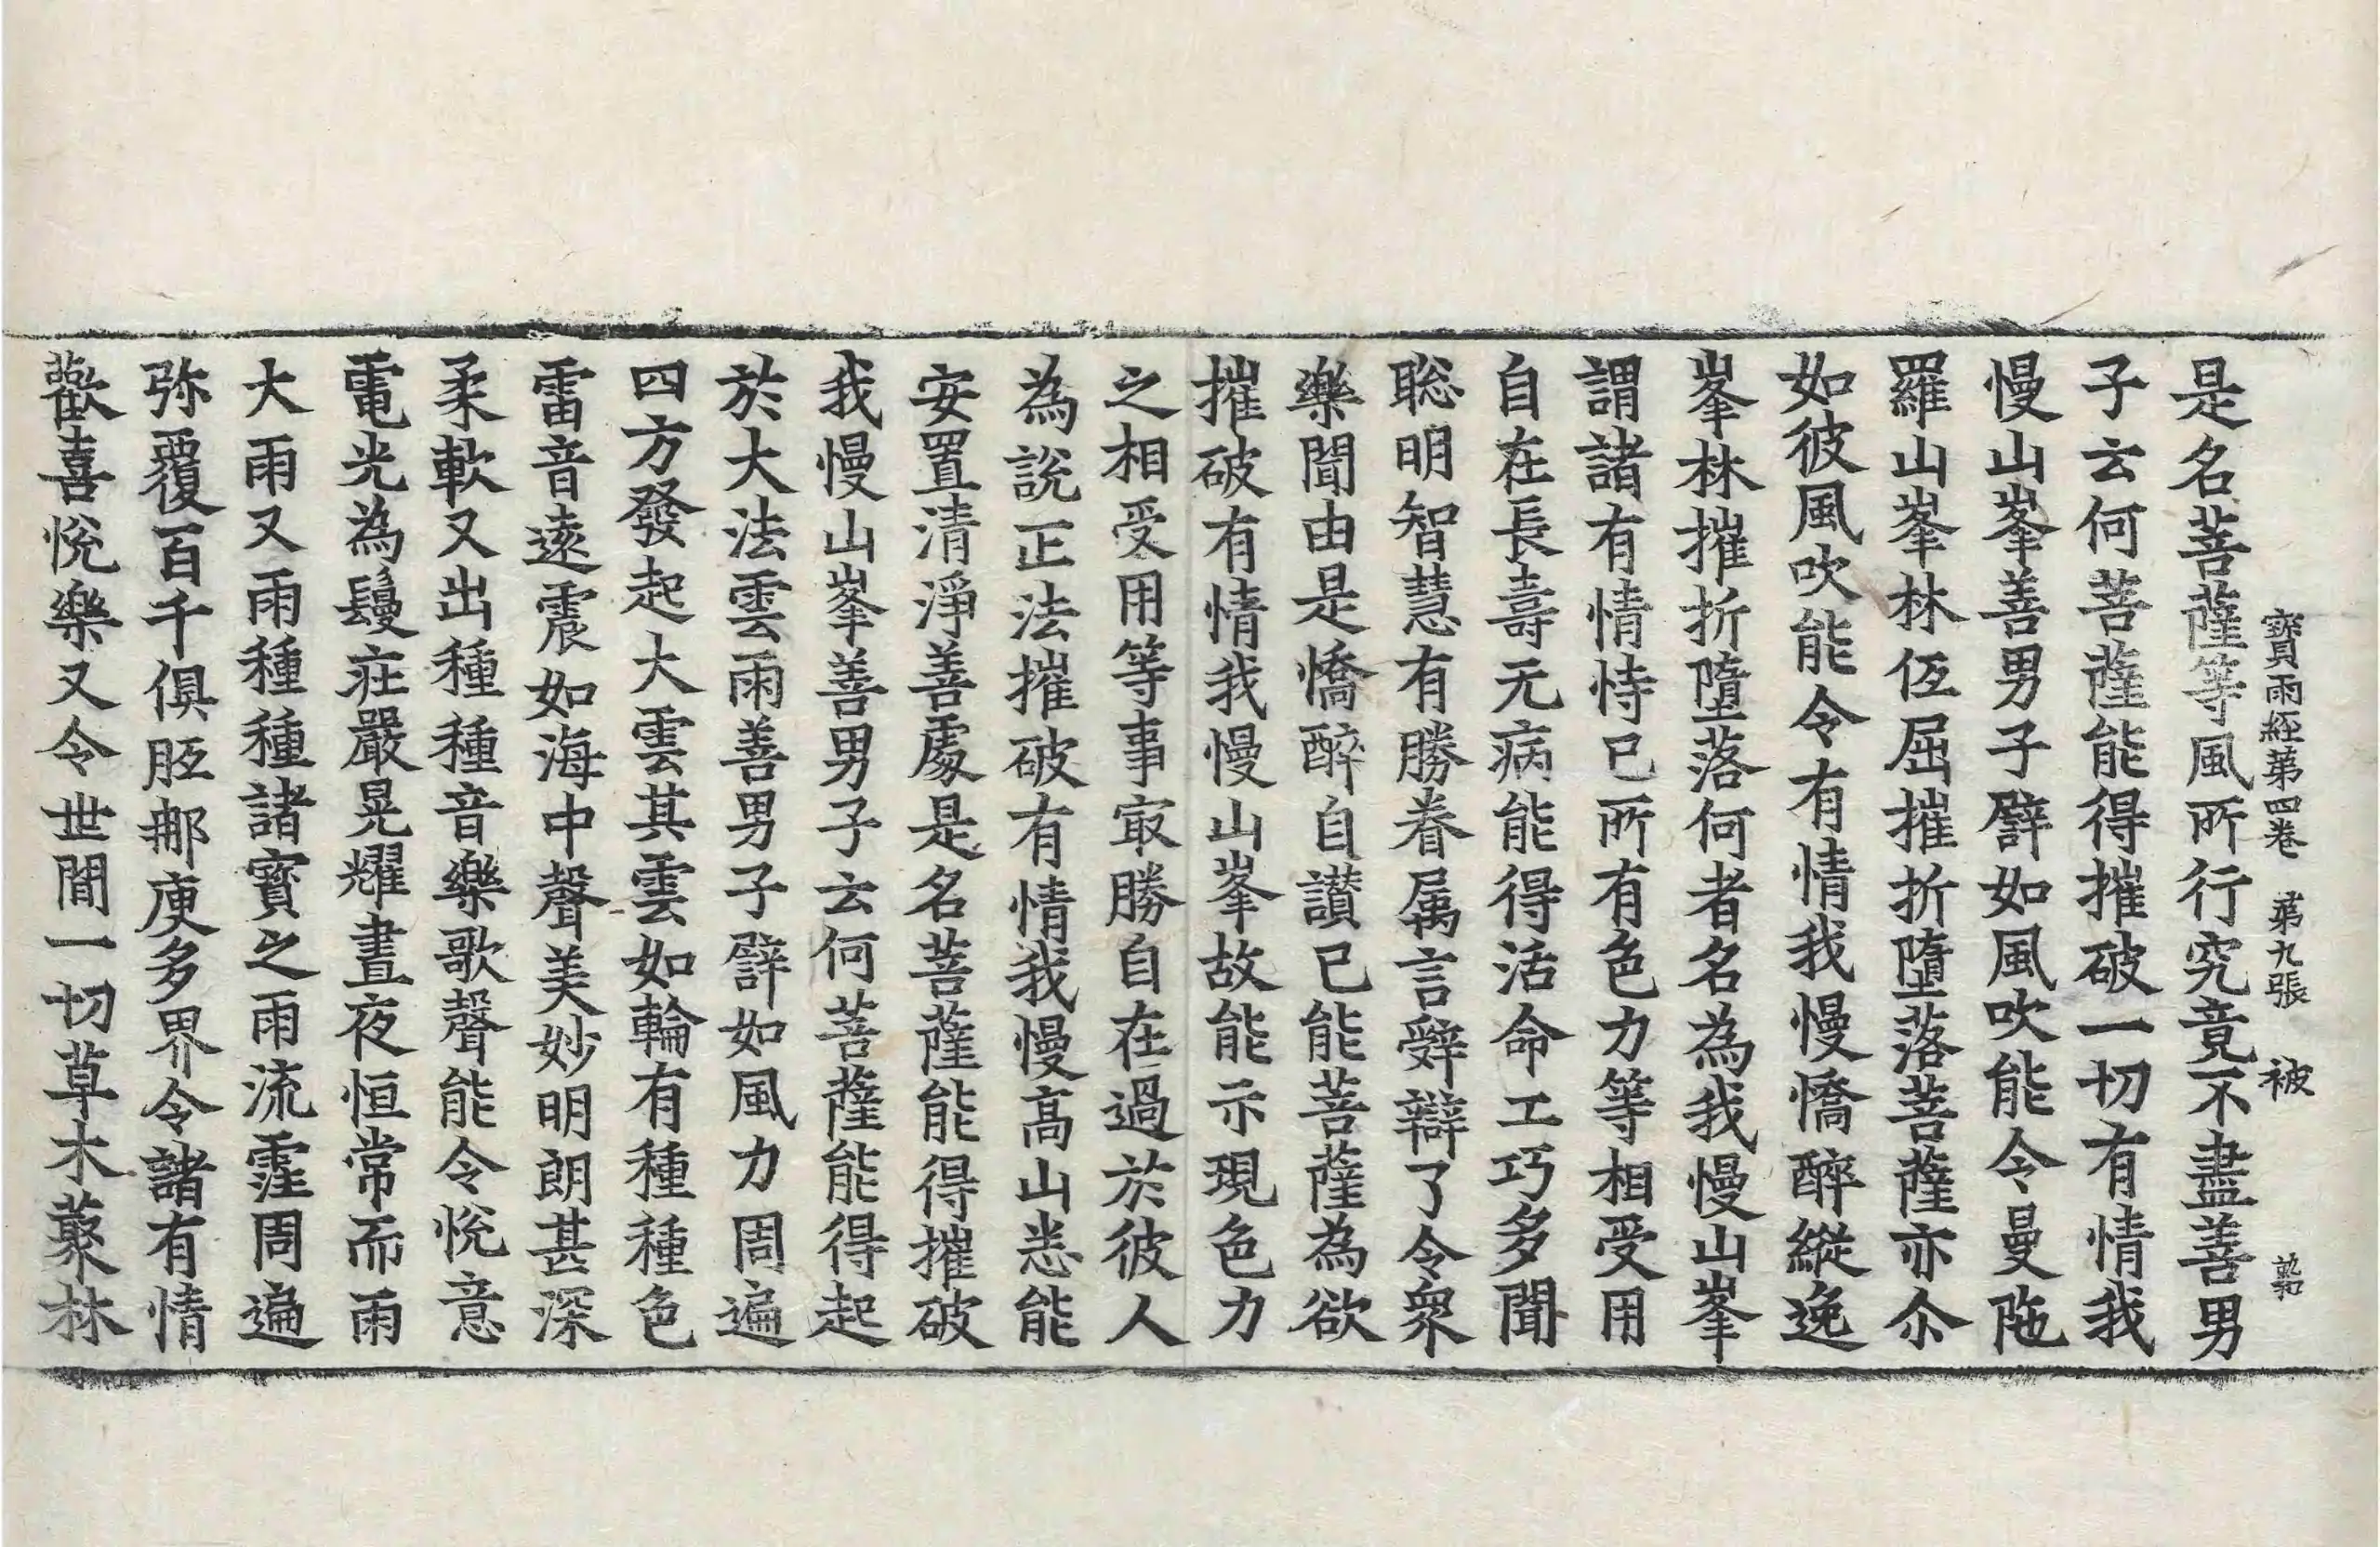 寶雨經第四卷 第九張 被
是名菩薩等風所行究竟不盡善男
子云何菩薩能得摧破一切有情我
慢山峯善男子譬如風吹能令曼陁
羅山峯林伍屈摧折墮落菩薩亦尒
如彼風吹能令有情我慢憍醉縱逸
峯林摧折墮落何者名為我慢山峯
謂諸有情恃已所有色力等相受用
自在長壽无病能得活命工巧多聞
聡明智慧有勝眷属言辤辯了令衆
樂聞由是憍醉自讃已能菩薩為欲
摧破有情我慢山峯故能示現色力
之相受用等事㝡勝自在過於彼人
為說正法摧破有情我慢高山悉能
安置清淨善處是名菩薩能得摧破
我慢山峯善男子云何菩薩能得起
於大法雲雨善男子譬如風力周遍
四方發起大雲其雲如輪有種種色
雷音遠震如海中聲美妙明朗甚深
柔軟又出種種音樂歌聲能令悅意
電光為鬘莊嚴晃耀晝夜恒常而雨
大雨又雨種種諸寶之雨流霔周遍
弥覆百千俱胝那庾多界令諸有情
歡喜悅樂又令世間一切草木藂林